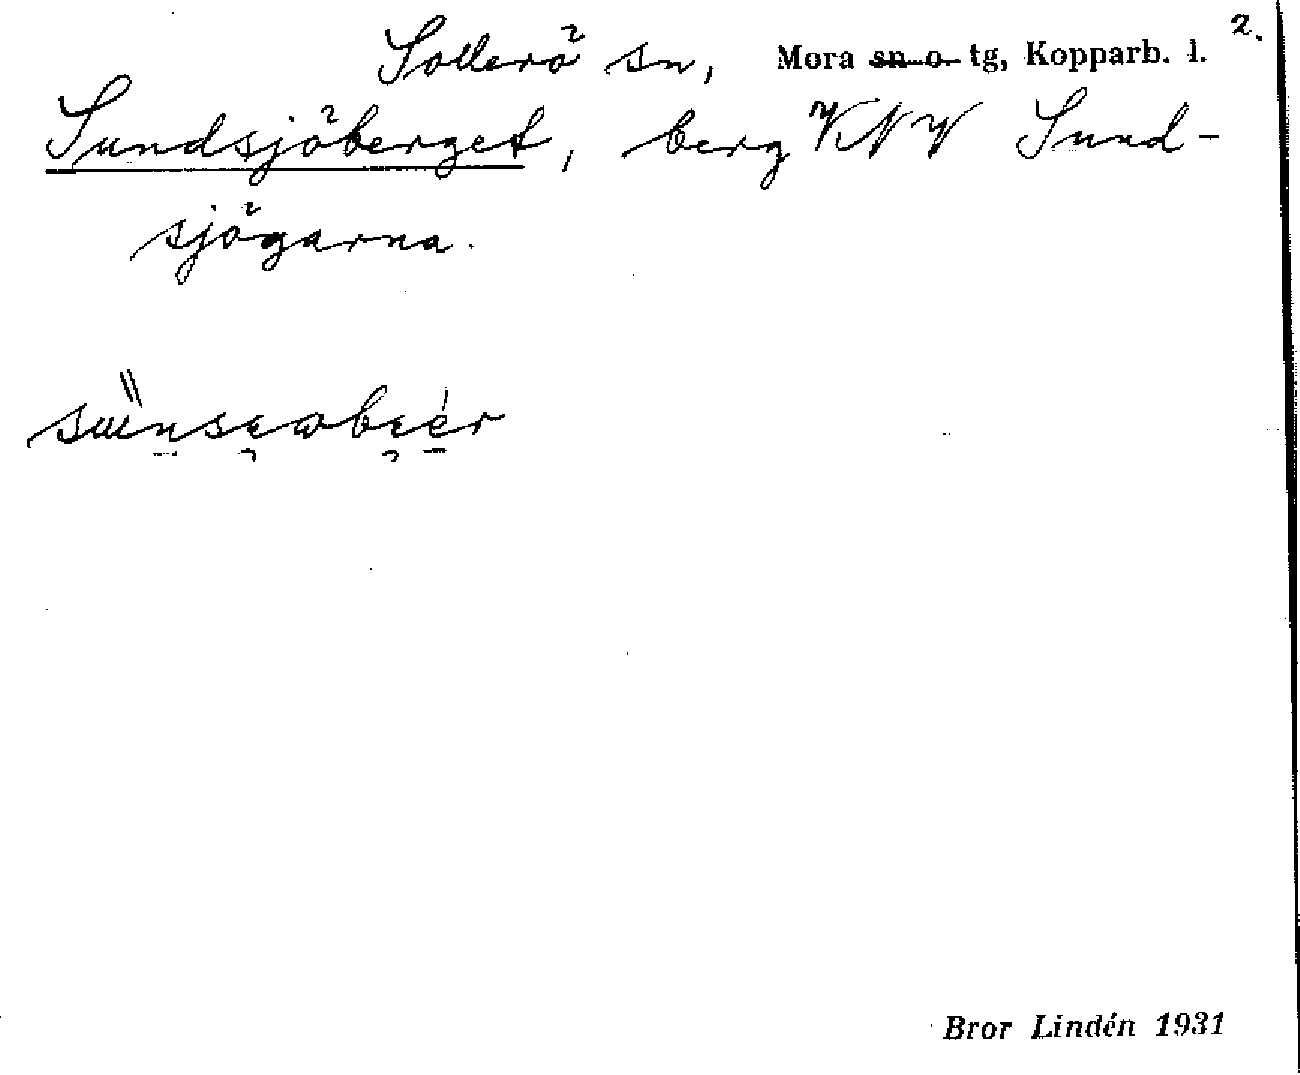 2.
Sollerö sn, Mora sn o. tg, Kopparb. l.
Sundsjöberget, berg VNV Sund-
sjögarna.
Bror Lindén 1931